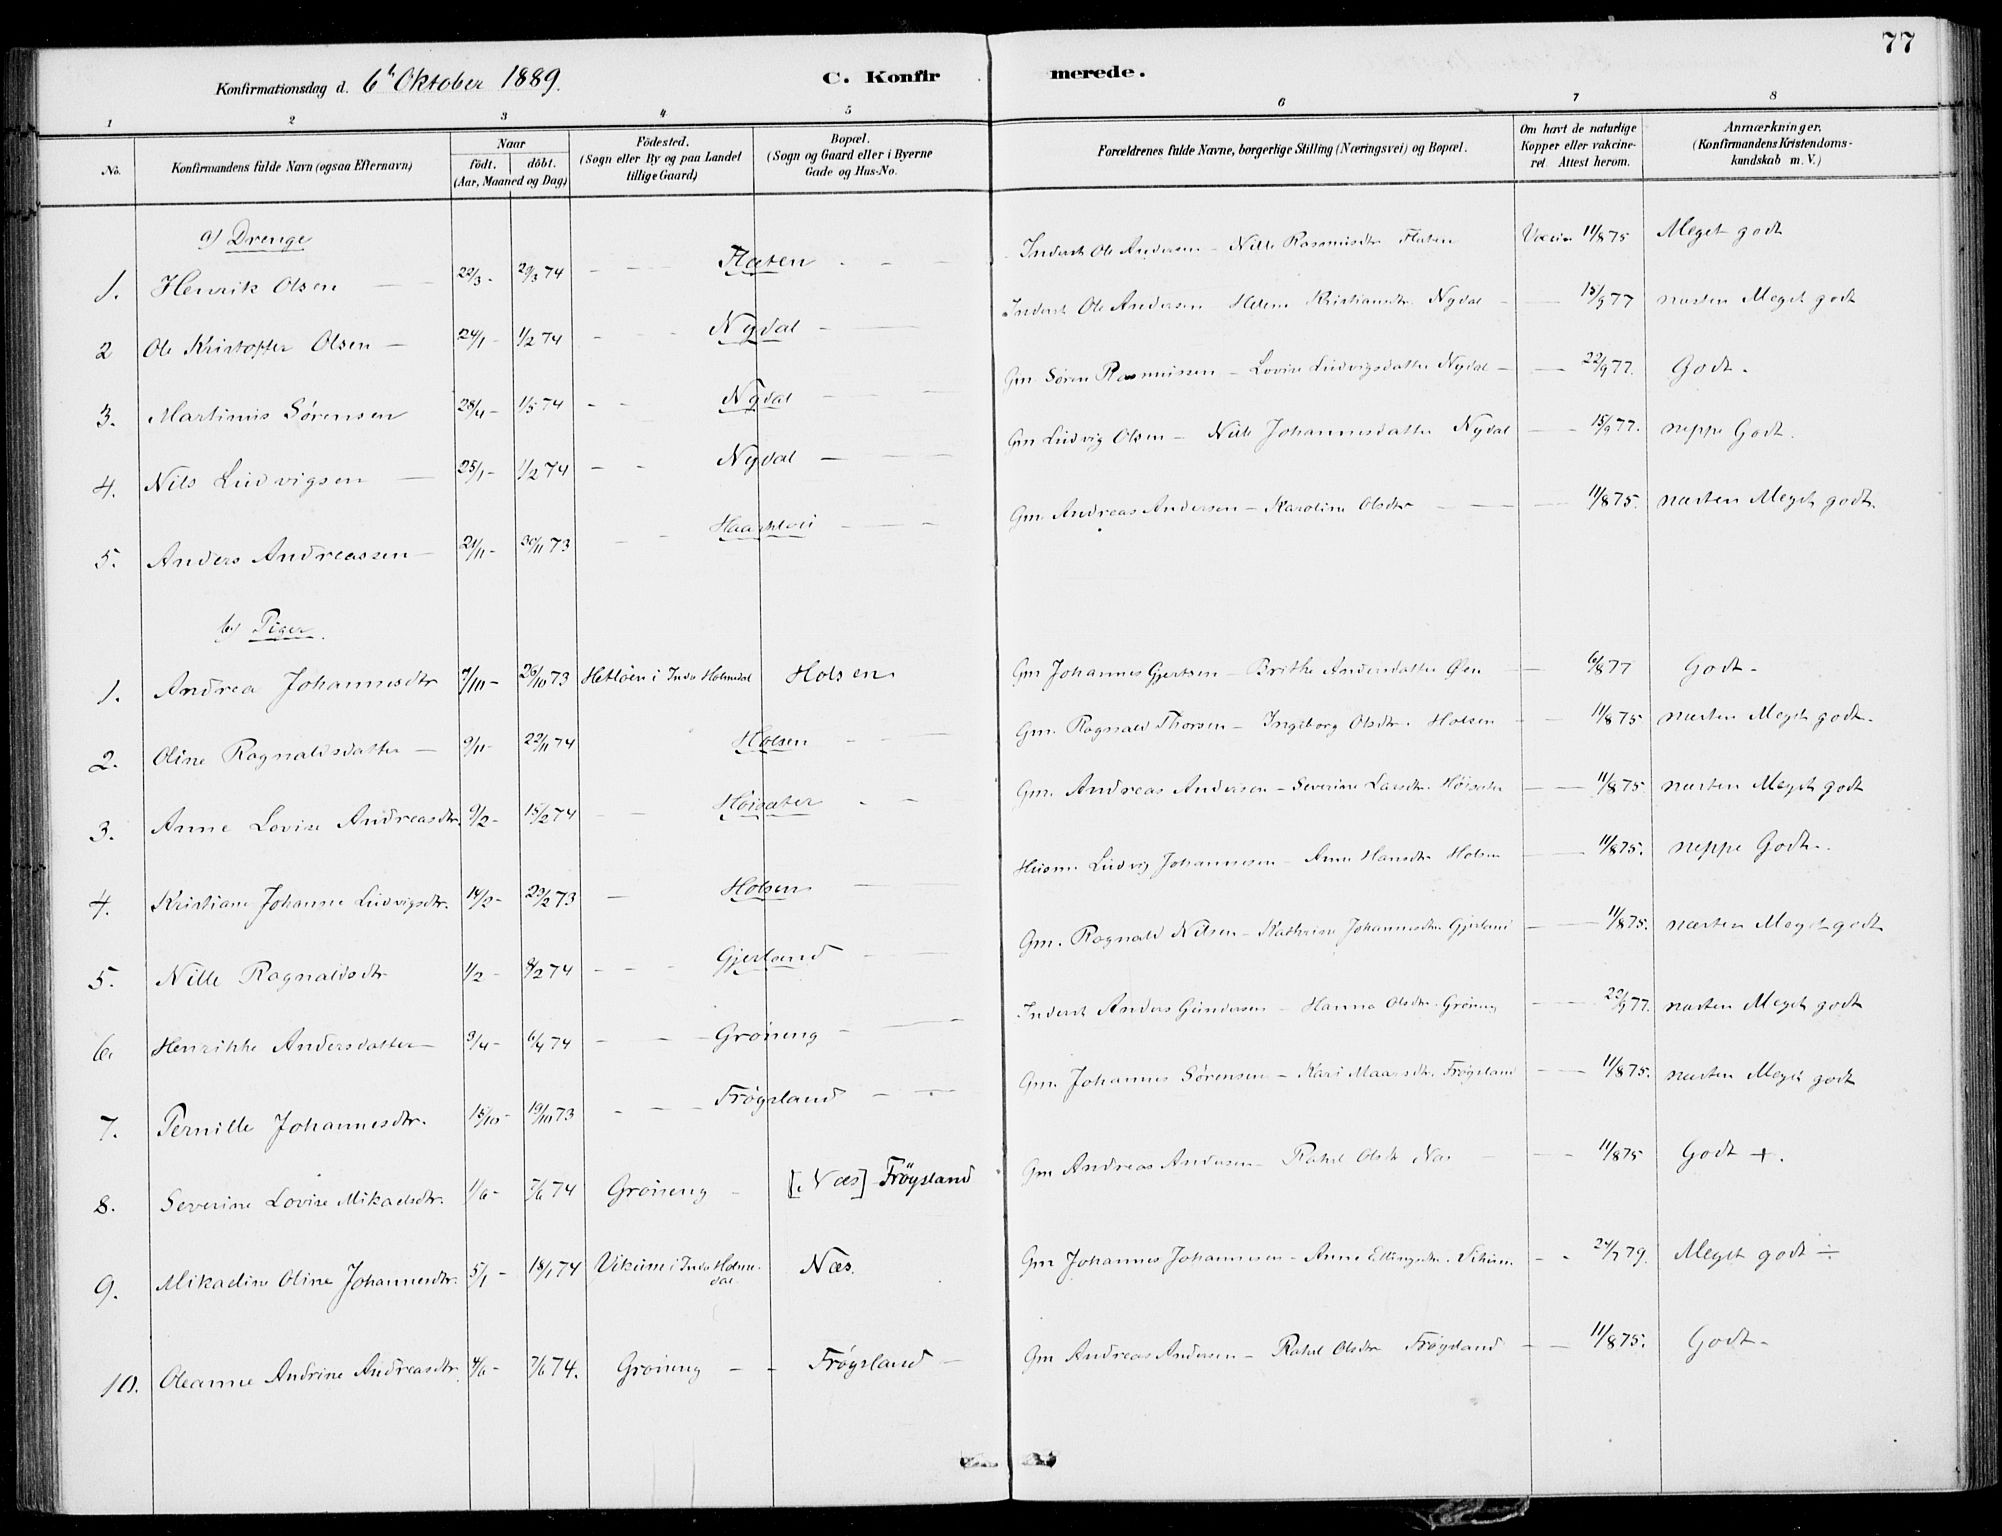 77
Konfirmationsdag d. 6t Oktober 1889.
C. Konfirmerede.
1 2 3 4 5 6 7 8
No.
Konfirmandens fulde Navn (ogsaa Efternavn)
Naar
födt. döbt.
(Aar, Maaned og Dag)
Födested.
(Sogn eller By og paa Landet
tillige Gaard)
Bopæl.
(Sogn og Gaard eller i Byerne
Gade og Hus-No.
Forældrenes fulde Navne, borgerlige Stilling (Næringsvei) og Bopæl.
Om havt de naturlige
Kopper eller vakcine-
ret. Attest herom.
Anmærkninger.
(Konfirmandens Kristendoms-
kundskab m. V.)
a) Drenge
1. Henrik Olsen 22/3 - 29/3 74 Flaten Inderst Ole Andersen - Nille Rasmusdtr Flaten Vaccin 11/8 75 Meget godt
2 Ole Kristoffer Olsen 24/1 - 1/2 74 Nydal Inderst Ole Andersen Helene Kristiansdtr. Nydal 15/9 77 næsten Meget godt
3. Martinus Sörensen 28/4 - 1/5 74 Nydal Gm Sören Rasmussen - Lovise Ludvigsdatter Nydal 22/9 77. Godt.
4. Nils Ludvigsen 25/1 - 1/2 74 Nydal Gm Ludvig Olsen - Nille Johannesdatter Nydal 15/9 77. neppe Godt.
5. Anders Andreassen 21/11 - 30/11 73 Gm. Andreas Andersen - Karoline Olsdtr 11/8 75. næsten Meget godt.
b) Piger.
1. Andrea Johannesdtr 7/10 - 26/10 73 Hetlöen i Indr Holmedal Holsen Gm Johannes Gjertsen - Brithe Andersdatter Öen 6/8 77 Godt.
2. Oline Ragnaldsdatter 9/11 - 22/11 74 Holsen Gm. Ragnald Thorsen - Ingeborg Olsdtr. Holsen 11/8 75 næsten Meget godt.
3. Anne Lovise Andreasdtr. 9/2 - 15/2 74 Höisæter Gm. Andreas Andersen - Severine Larsdtr. Höisæter 11/8 75. næsten Meget godt
4. Kristiane Johanne Ludvigsdtr. 14/2 - 23/2 73 Holsen Husm. Ludvig Johannesen - Anne Hansdtr Holsen 11/8 75. neppe Godt.
5. Nille Ragnaldsdtr 1/2 - 8/2 74 Gjerland Gm. Ragnald Nilsen - Kathrine Johannesdtr. Gjerland 11/8 75. næsten Meget godt
6. Henrikke Andersdatter 3/4 - 6/4 74 Gröneng Inderst Anders Gundersen - Hanna Olsdtr. Gröneng 22/9 77. næsten Meget godt
7. Pernille Johannesdtr. 15/10 - 19/10 73 Frögsland Gm. Johannes Sörensen - Kari Maarsdtr. Frögsland 11/8 75. næsten Meget godt
8. Severine Lovise Mikaelsdtr. 1/6 - 7/6 74 Gröneng [Næs] Fröysland Gm Andreas Andersen - Rakel Olsdtr Næs 11/8 75 Godt +.
9. Mikaeline Oline Johannesdtr. 5/1 - 18/1 74 Vikum i Indr Holme-
dal. Næs. Gm Johannes Johannesen - Anne Ellingsdtr. Vikum. 24/7 79. Meget godt ÷
10. Oleanne Andrine Andreasdtr. 4/6 - 7/6 74. Gröneng Frögsland Gm Andreas Andersen - Rakel Olsdtr Frögsland 11/8 75. Godt.